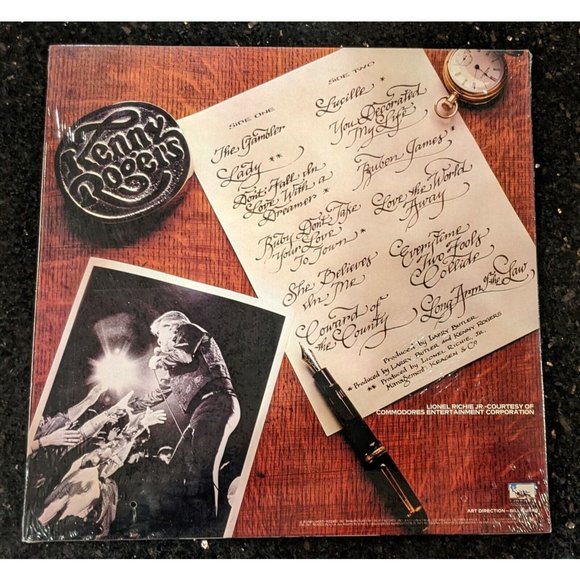 Kenny
Rogers
SIDE ONE
The Gambler
Lady **
Don't Fall In
Love With a
Dreamer *
Ruby Don't Take
Your Love
To Town
She Believes
In Me
Coward of
the County
SIDE TWO
Lucille
You Decorated
My Life
Reuben James *
Love the World
Away
Everytime
Two Fools
Collide
Long Arm of the Law
Produced by LARRY BUTLER
* Produced by LARRY BUTLER and KENNY ROGERS
** Produced by LIONEL RICHIE, JR.
Management: KRAGEN & CO.
LIONEL RICHIE JR.-COURTESY OF
COMMODORES ENTERTAINMENT CORPORATION
ART DIRECTION — BILL